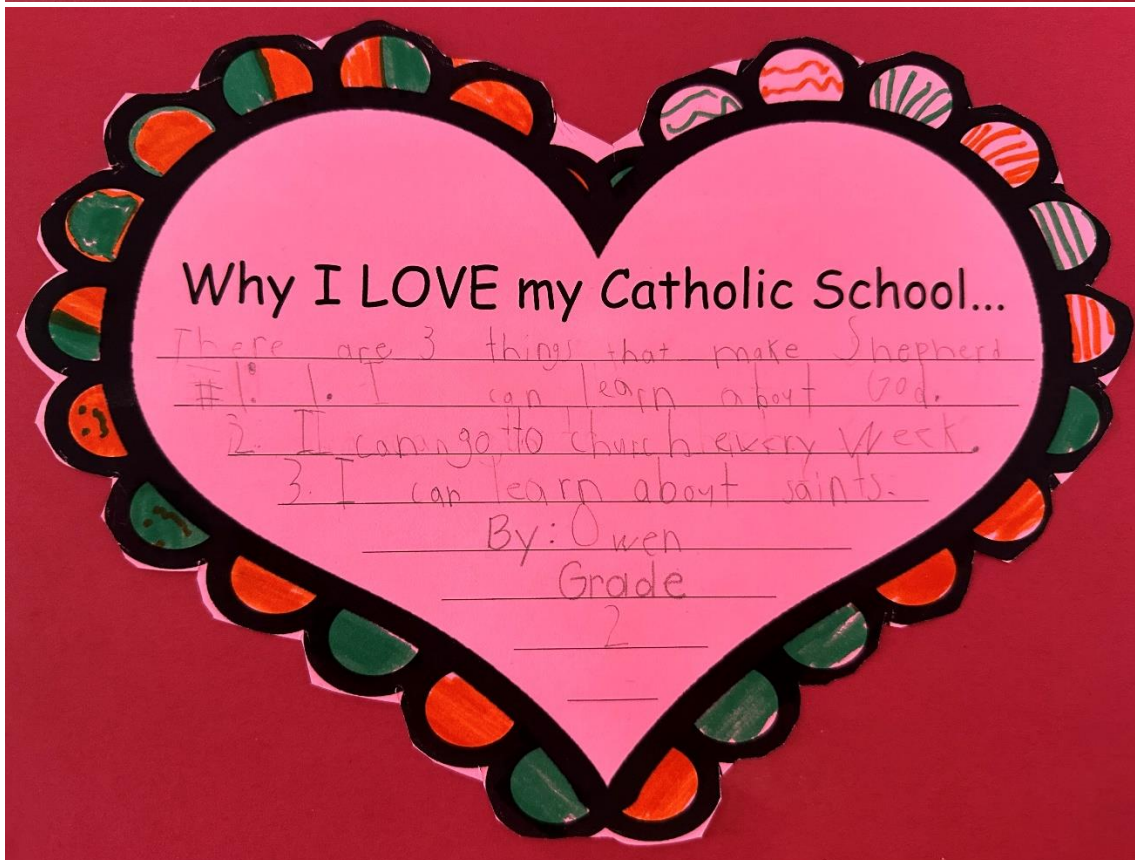 Why I LOVE my Catholic School...
There are 3 things that make Shepherd
#1: 1. I can learn about God.
2. I can go to church every week.
3. I can learn about saints.
By: Owen
Grade
2